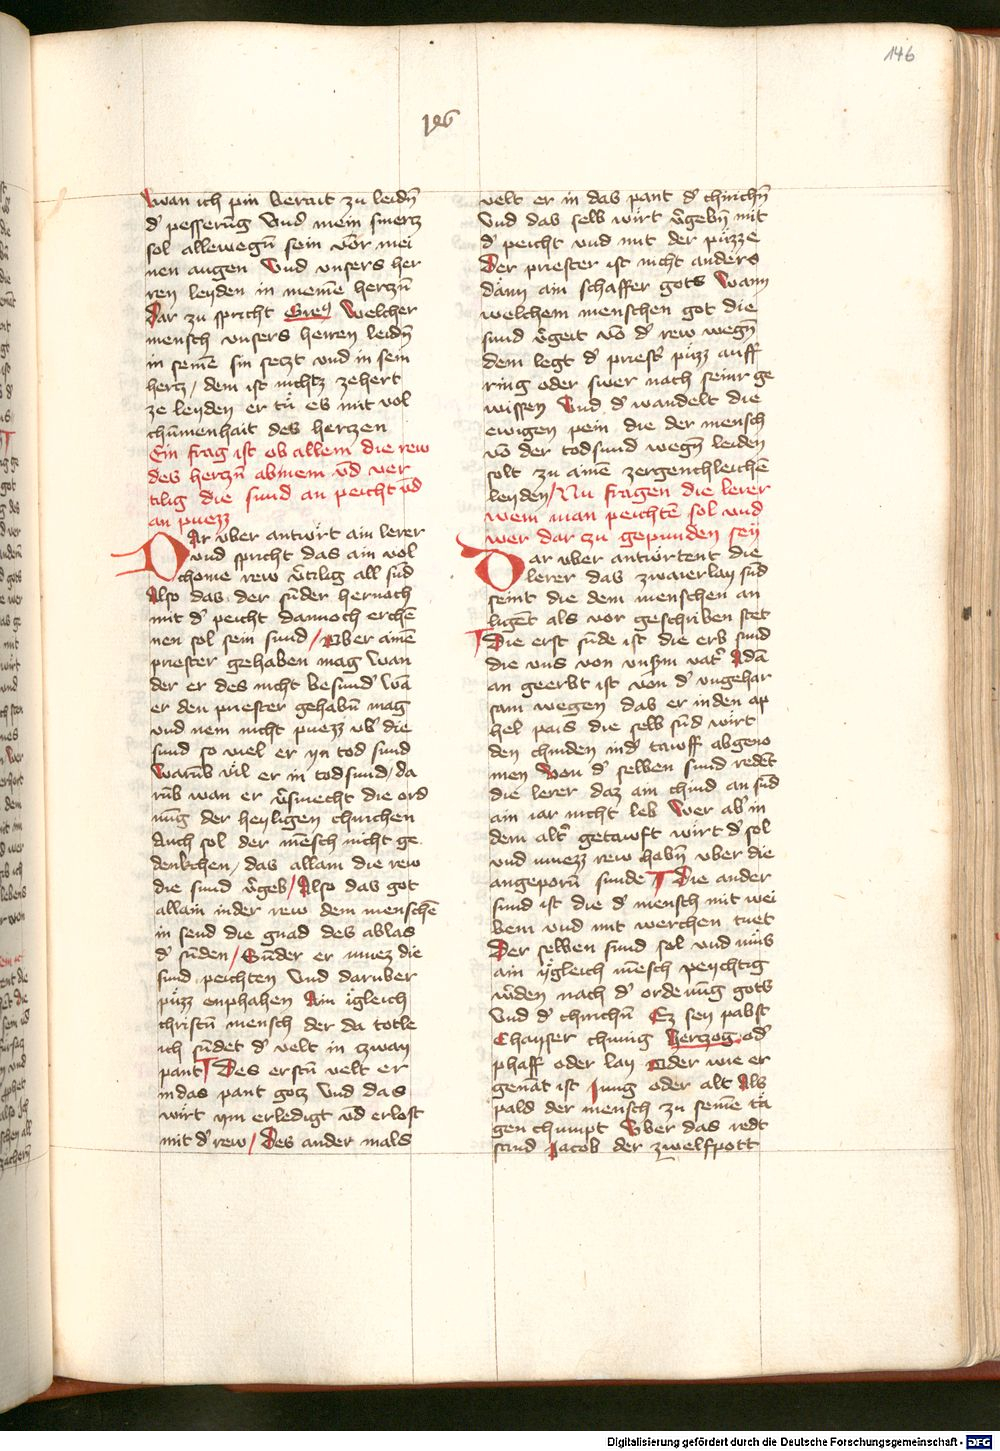 146
196
wan ich pin berait zu leidn̄
d' pesserūg Vnd mein smertz
sol allewegn̄ sein vor mei
nen augen Vnd vnsers her
ren leyden in meinē hertzn̄
Dar zu spricht Greḡ Welcher
mensch vnsers herren leidn̄
in seinē sin setzt vnd in sein
hertz / dem ist nichtz zehert
ze leyden er tü es mit vol
chūmenhait des hertzen
Ein frag ist ob allein die rew
des hertzn̄ abnem vn̄d ver
tilig die sund an peicht vn̄d
an puezz
DAr vber antwürt ain lerer
vnd spricht das ain vol
chome rew v'tilig all sūd
Also das der sūder hernach
mit d' peicht dannoch erchē
nen sol sein sund / Aber ainē
priester gehaben mag wan
der er des nicht besund' wā
er den priester gehabn̄ mag
vnd nem nicht puezz vb' die
sund so viel er yn tod sund
Warūb vil er in todsund / da
rūb wan er v'smecht die ord
nūg der heyligen chirichen
Auch sol der mēsch nicht ge
denkchen / das allain die rew
die sund v'geb / Also das got
allain inder rew dem menschē
in send die gnad des ablas
d' sūden / Sunder er muez die
sund peichten Vnd daruber
püzz enphahen Ain igleich
christn̄ mensch der da totle
ich sūdet d' velt in zway
pant Des erstn̄ velt er
in das pant gotz Vnd das
wirt ym erledigt vn̄d erlost
mit d' rew / Des ander mals
velt er in das pant d' chirichn̄
Vnd das selb wirt v'gebn̄ mit
d' peicht vnd mit der püzze
Der priester ist nicht anders
dann ain schaffer gots Wann
welchem menschen got die
sund v'geit vō d' rew wegn̄
dem legt d' priest' püzz auff
ring oder swer nach seinr ge
wissen Vnd d' wandelt die
ewigen pein die der mensch
vō der todsund wegn̄ leiden
solt zu ainē zergenchleichē
leyden / Nu fragen die lerer
wem man peichtē sol vnd
wer dar zu gepunden sey
Dar vber antwürtent die
lerer das zwaierlay sūd
seint die dem menschen an
ligēt als vor geschriben stet
Die erst sūde ist die erb sund
die vns von vnsm vat' Adā
an geerbt ist von d' vngehar
sam wegen das er in den ap
hel pais die selb sūd wirt
den chinden ind' tawff abgeno
men Von d' selben sund redēt
die lerer daz ain chind an sūd
ain iar nicht leb Wer ab' in
dem alt' getawft wirt d' sol
vnd muezz rew habn̄ vber die
angeporn̄ sunde Die ander
sund ist die d' mensch mit wei
bem vnd mit werchen tuet
Der selben sund sol vnd mus
ain ygleich mēsch peychtig
w'den nach d' ordenūg gots
Vnd d' chirichn̄ Ez sey pabst
Chayser chunig hertzog od'
phaff oder lay Oder wie er
genāt ist Jung oder alt Als
pald der mensch zu seinē tä
gen chumpt Vber das redt
sand Jacob der zwelfpott
Digitalisierung gefördert durch die Deutsche Forschungsgemeinschaft - DFG